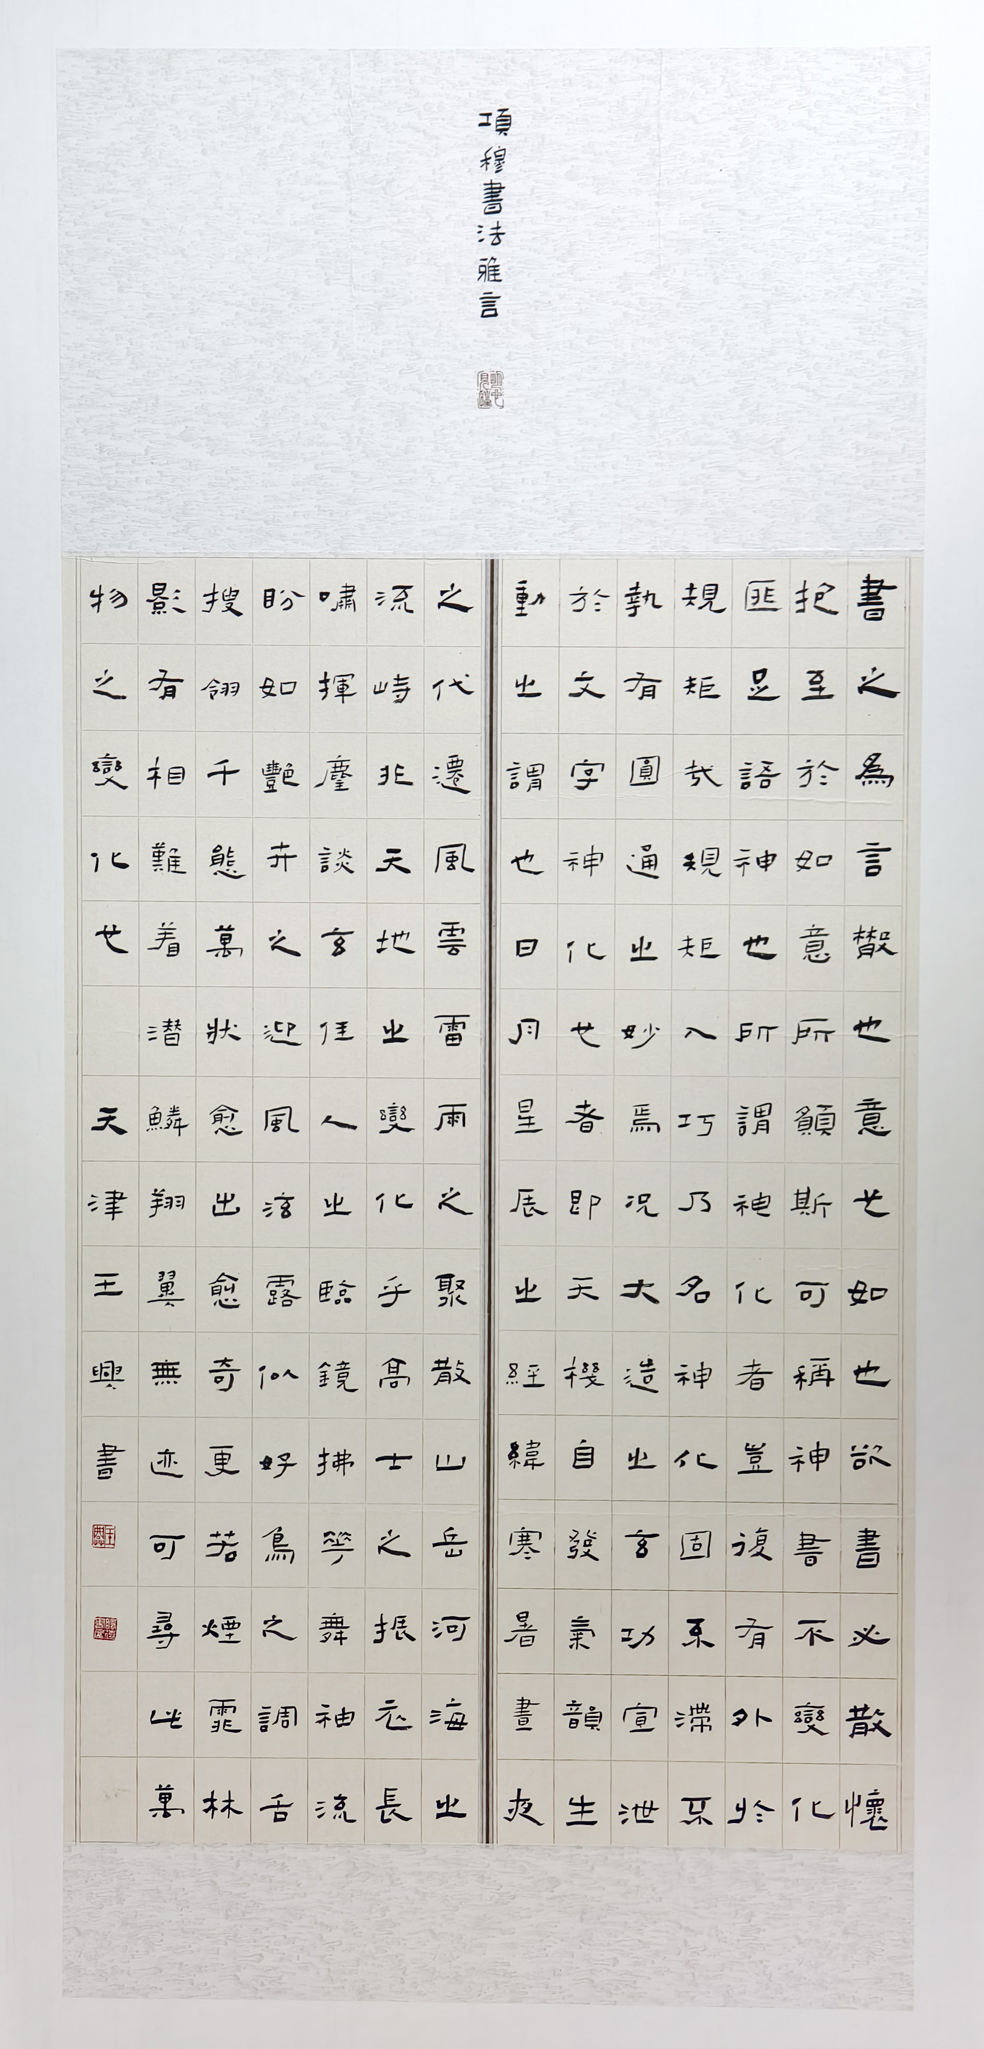 項穆書法雅言
書之為言散也意也如也欲書必散懷
抱至於如意所願斯可稱神書不變化
匪足語神也所謂神化者豈復有外於
規矩哉規矩入巧乃名神化固不滯不
執有圓通之妙焉況大造之玄功宣泄
於文字神化也者即天機自發氣韻生
動之謂也日月星辰之經緯寒暑晝夜
之代遷風雲雷雨之聚散山岳河海之
流峙非天地之變化乎高士之振衣長
嘯揮麈談玄佳人之臨鏡拂華舞袖流
盼如豔卉之迎風泫露似好鳥之調舌
搜翎千態萬狀愈出愈奇更若煙霏林
影有相難着潛鱗翔翼無迹可尋此萬
物之變化也 天津王興書